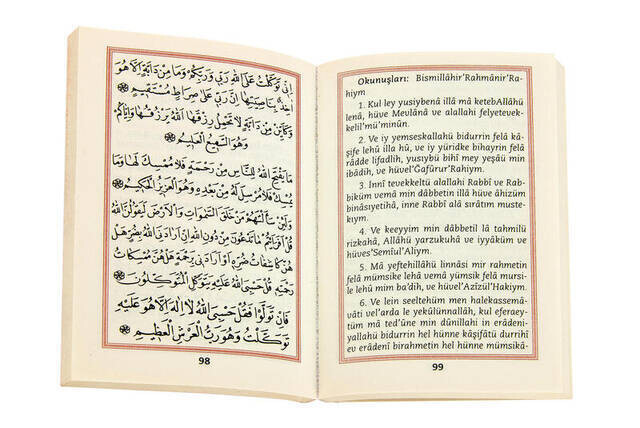 اِنِّي تَوَكَّلْتُ عَلَى اللّٰهِ رَبِّي وَرَبِّكُمْ وَمَا مِنْ دَابَّةٍ اِلَّا هُوَ
اٰخِذٌ بِنَاصِيَتِهَا اِنَّ رَبِّي عَلٰى صِرَاطٍ مُسْتَقِيمٍ
وَكَاَيِّنْ مِنْ دَابَّةٍ لَا تَحْمِلُ رِزْقَهَا اَللّٰهُ يَرْزُقُهَا وَاِيَّاكُمْ
وَهُوَ السَّمِيعُ الْعَلِيمُ
مَا يَفْتَحِ اللّٰهُ لِلنَّاسِ مِنْ رَحْمَةٍ فَلَا مُمْسِكَ لَهَا وَمَا
يُمْسِكْ فَلَا مُرْسِلَ لَهُ مِنْ بَعْدِهِ وَهُوَ الْعَزِيزُ الْحَكِيمُ
وَلَئِنْ سَاَلْتَهُمْ مَنْ خَلَقَ السَّمٰوَاتِ وَالْاَرْضَ لَيَقُولُنَّ اللّٰهُ
قُلْ اَفَرَاَيْتُمْ مَا تَدْعُونَ مِنْ دُونِ اللّٰهِ اِنْ اَرَادَنِيَ اللّٰهُ بِضُرٍّ هَلْ
هُنَّ كَاشِفَاتُ ضُرِّهِ اَوْ اَرَادَنِي بِرَحْمَةٍ هَلْ هُنَّ مُمْسِكَاتُ
رَحْمَتِهِ قُلْ حَسْبِيَ اللّٰهُ عَلَيْهِ يَتَوَكَّلُ الْمُتَوَكِّلُونَ
فَاِنْ تَوَلَّوْا فَقُلْ حَسْبِيَ اللّٰهُ لَا اِلٰهَ اِلَّا هُوَ عَلَيْهِ
تَوَكَّلْتُ وَهُوَ رَبُّ الْعَرْشِ الْعَظِيمِ
98
Okunuşları: Bismillâhir'Rahmânir'Ra-
hiym
1. Kul ley yusiybenâ illâ mâ ketebAllâhü
lenâ, hüve Mevlânâ ve alallahi felyetevek-
kelil'mü'minûn.
2. Ve iy yemseskallahu bidurrin felâ kâ-
şife lehû illa hû, ve iy yüridke bihayrin felâ
râdde lifadlih, yusiybü bihî mey yeşâü min
ibâdih, ve hüvel'Ğafûrur'Rahiym.
3. İnnî tevekkeltü alallahi Rabbî ve Rab-
biküm vemâ min dâbbetin illâ hüve âhizüm
binâsıyetihâ, inne Rabbî alâ sırâtım muste-
kıym.
4. Ve keeyyim min dâbbetil lâ tahmilü
rizkahâ, Allâhü yarzukuhâ ve iyyâküm ve
hüves'Semîul'Aliym.
5. Mâ yeftehillâhü linnâsi mir rahmetin
felâ mümsike lehâ vemâ yümsik felâ mursi-
le lehû mim ba'dih, ve hüvel'Azîzül'Hakiym.
6. Ve lein seeltehüm men halekassemâ-
vâti vel'arda le yekûlünnallah, kul eferaey-
tüm mâ ted'ûne min dûnillahi in erâdeni-
yallahü bidurrin hel hünne kâşifâtü durrihî
ev erâdenî birahmetin hel hünne mümsikâ-
99